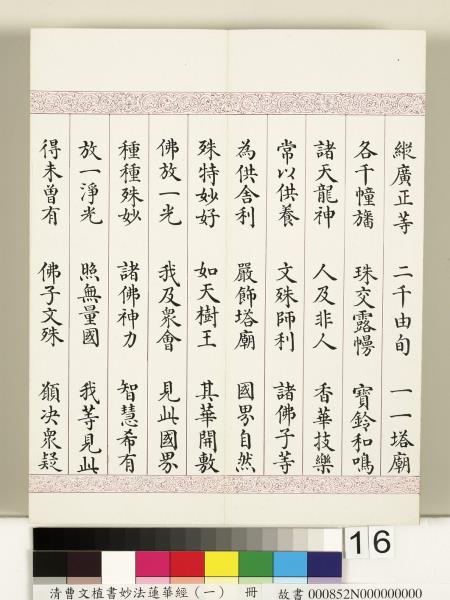 縱廣正等 二千由旬 一一塔廟
各千幢旛 珠交露幔 寶鈴和鳴
諸天龍神 人及非人 香華技樂
常以供養 文殊師利 諸佛子等
為供舍利 嚴飾塔廟 國界自然
殊特妙好 如天樹王 其華開敷
佛放一光 我及眾會 見此國界
種種殊妙 諸佛神力 智慧希有
放一淨光 照無量國 我等見此
得未曾有 佛子文殊 願決眾疑
16
清曹文植書妙法蓮華經(一) 冊 故書 000852N000000000